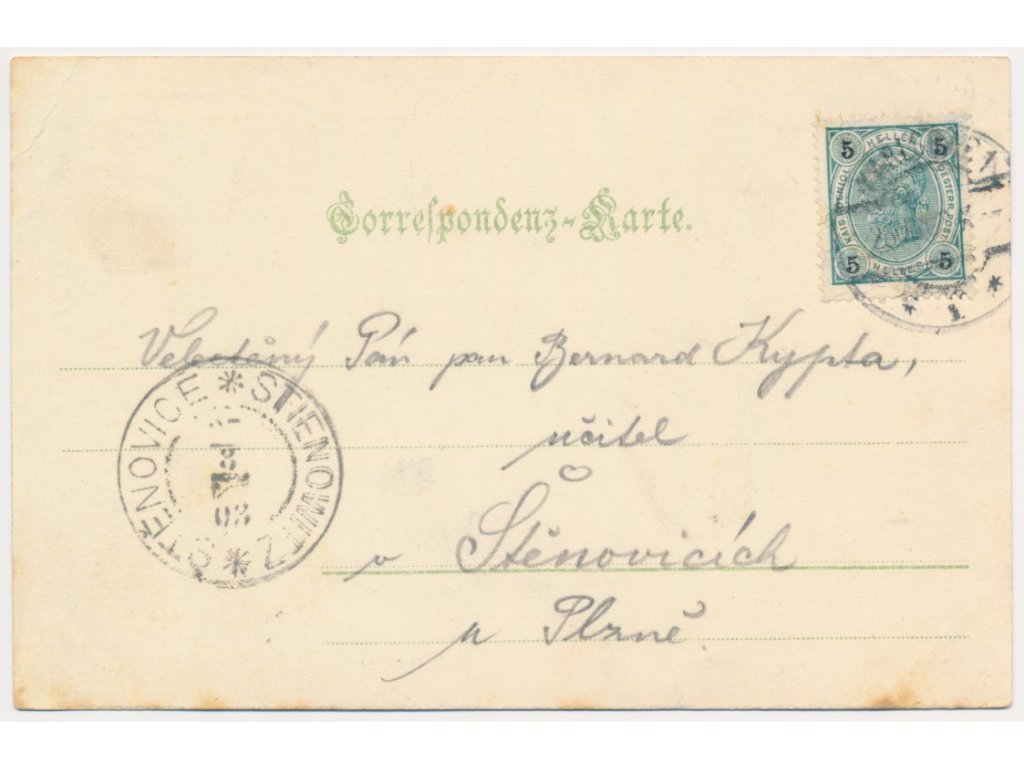 Correspondenz-Karte.
5 HELLER 5
KAIS. KÖNIGL. OESTERR. POST
5 HELLER 5
Veloctěný Pán pan Bernard Kypta,
učitel
v Štěnovicích
u Plzně
ŠTĚNOVICE * STIENOWITZ *
03